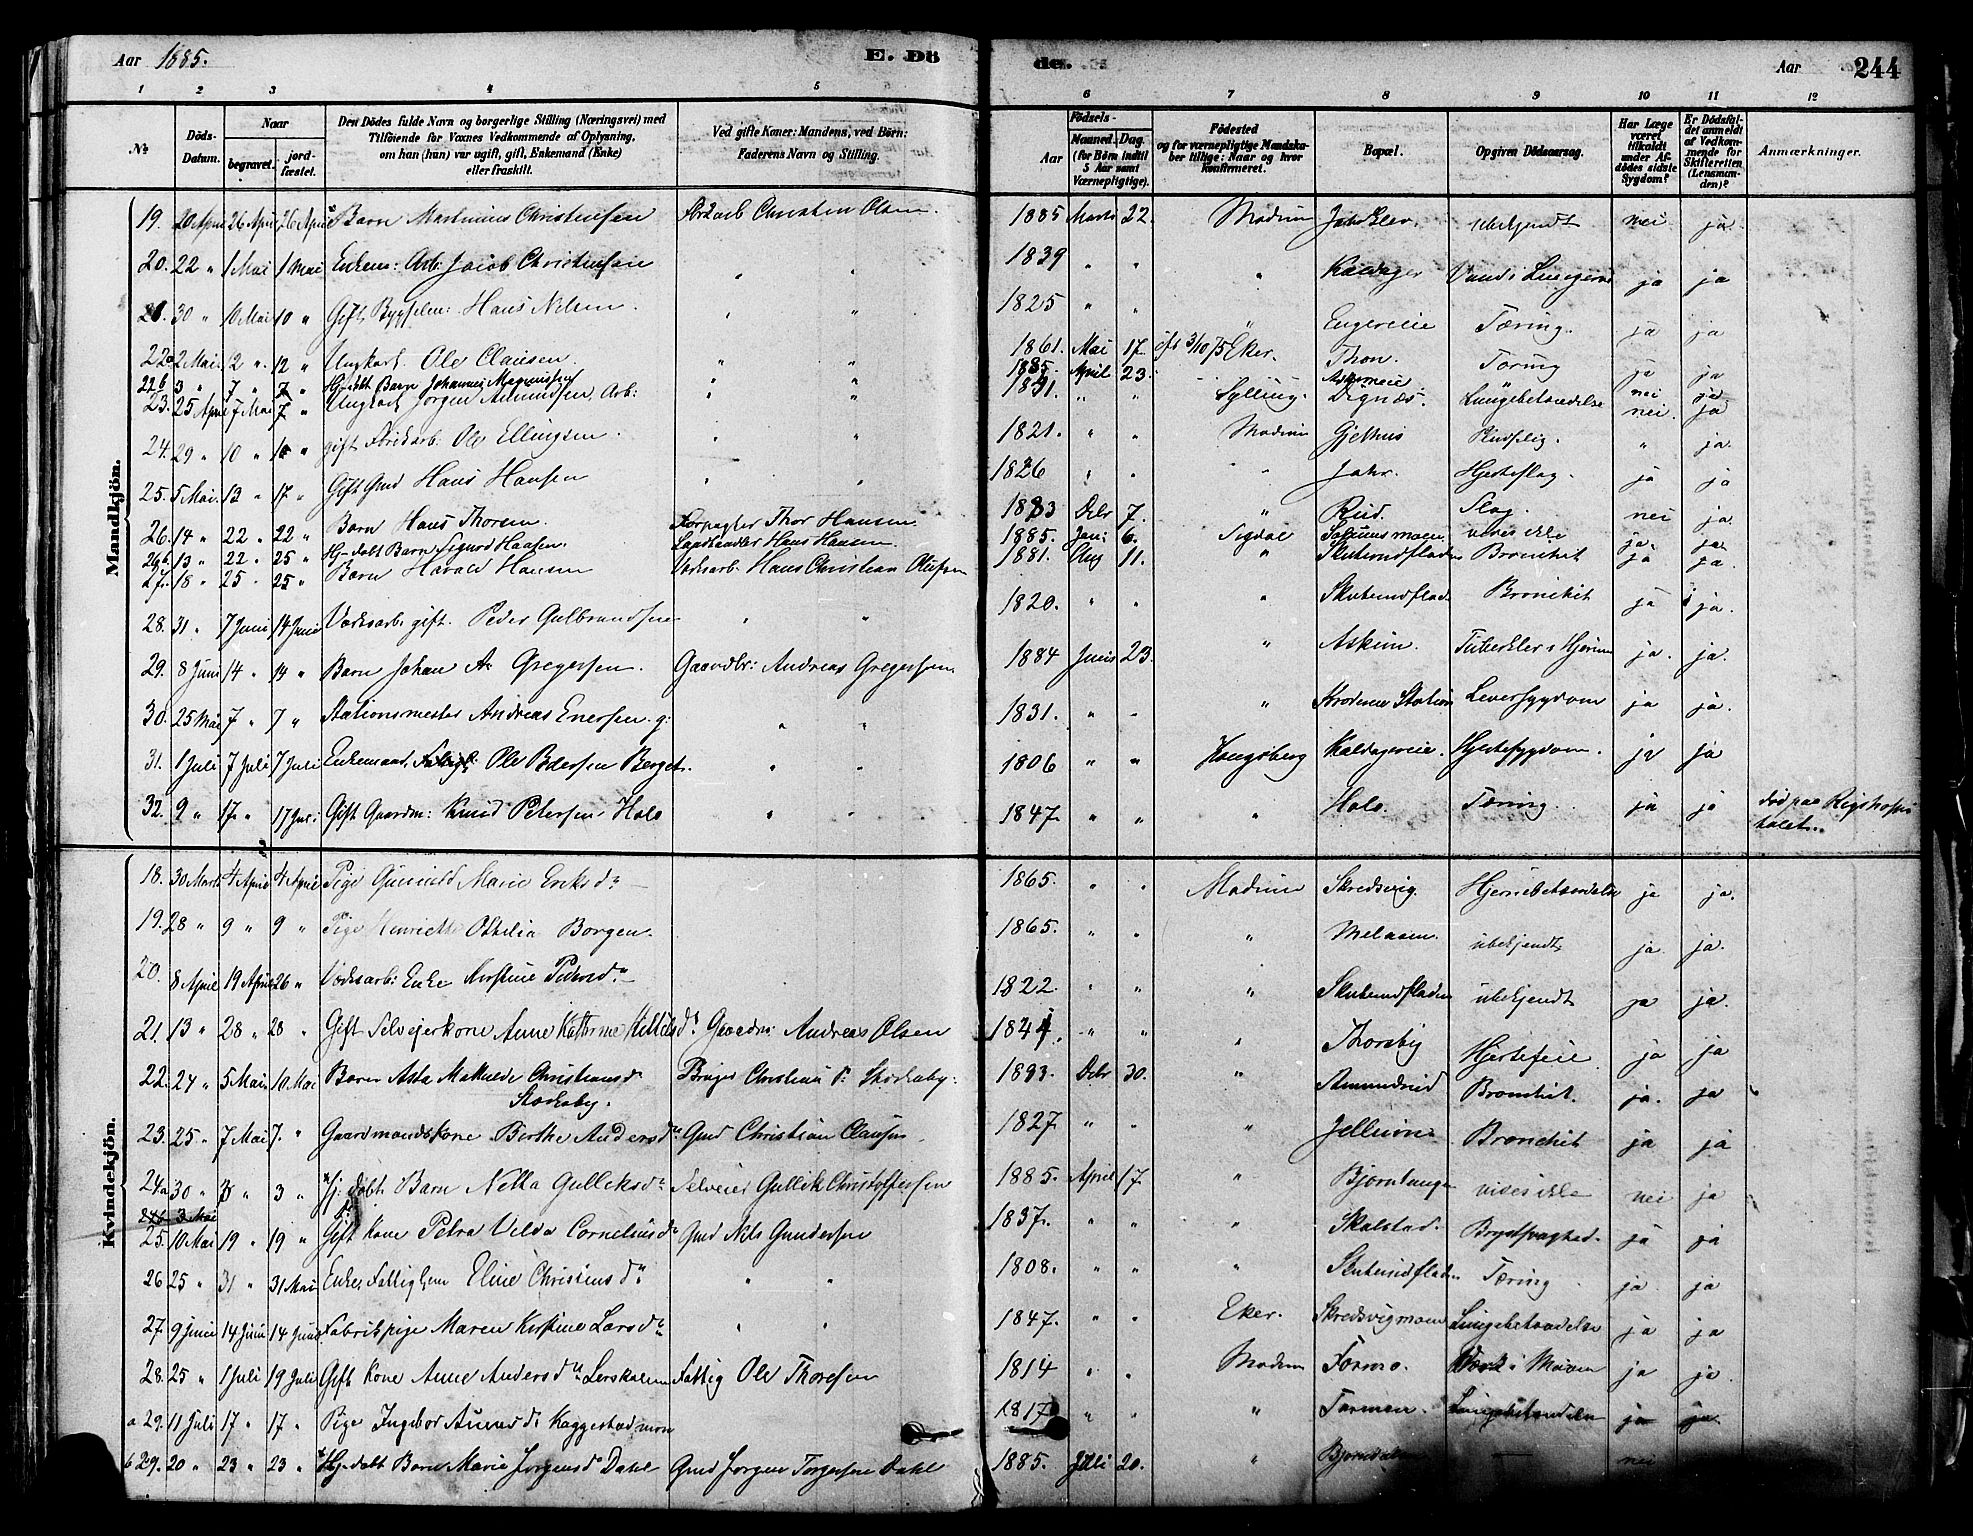 Aar 1885. E. Dö
de. Aar 244
1 2 3 4 5 6 7 8 9 10 11 12
No. Döds-Datum. Naar begravet. jordfæstet. Den Dödes fulde Navn og borgerlige Stilling (Næringsvei) med Tilföiende for Voxnes Vedkommende af Oplysning, om han (hun) var ugift, gift, Enkemand (Enke) eller fraskilt. Ved gifte Koner: Mandens, ved Börn: Faderens Navn og Stilling.
Födsels- Aar Maaned. Dag. (for Börn indtil 5 Aar samt Værnepligtige). Födested og for værnepligtige Mandskaber tillige: Naar og hvor konfirmeret. Bopæl. Opgiven Dödsaarsag. Har Læge været tilkaldt under Afdödes sidste Sygdom? Er Dödsfaldet anmeldt af Vedkommende for Skifteretten (Lensmanden)? Anmærkninger.
Mandkjön.
19. 20 April 26 April 26 April Barn Martinius Christensen Christen Olsen. 1885 Marts 22. Modum ubekjendt nei. ja.
20. 22 " 1 Mai 1 Mai Enkem: Arb: Jacob Christensen " " 1839 " " " Kaldager Vand i Lungerne ja ja
21. 30 " 10 Mai 10 " Gift Hans Nilsen. " " 1825 " " " Engereie Tæring. ja ja
22a 2 Mai 12 " 12 " Ungkarl Ole Clausen. " " 1861. Mai 17. Eker. Thon. Tæring ja ja
22b 3 " 7 " 7 " Hj. døbt Barn Johannes Magnussen " " 1885. April 23.
23. 25 April 7 Mai 7 " Ungkarl Jörgen Amundsen Arb: " " " " Sylling. Dignæs. Lungebetændelse nei ja
24. 29 " 10 " 10 " gift Ole Ellingsen. " " 1821. " " Modum Gjethus " ja.
25. 5 Mai. 13 " 17 " Gift Gmd Hans Hansen " " 1826 " " " Jahr. Hjerteslag. ja ja
26. 14 " 22 " 22 " Barn Hans Thorsen. Forpagter Thor Hansen 1883 Debr 7. " Rud. Slag. nei ja.
26b. 13 " 22 " 25 " Hj-døbt Barn Sigurd Hansen. Landhandler Hans Hansen. 1885. Jan: 6. Sigdal vides ikke ja. ja.
27. 18 " 25 " 25 " Barn Harald Hansen Hans Christian Olufsen 1881. Aug 11. " Skuterudfladen Bronchit ja ja.
28. 31 " 7 Juni 14 Juni gift. Peder Gulbrandsen " " 1820. " " " Skuterudflad. Bronchit ja ja.
29. 8 Juni 14 " 14 " Barn Johan A. Gregersen. Gaardbr: Andreas Gregersen. 1884 Juni 23. " Askim. Tuberkler i Hjernen ja. ja.
30. 25 Mai 7 " 7 " Stationsmester Andreas Enersen. g: " " 1831. " " " Station Leversygdom ja ja.
31. 1 Juli 7 Juli 7 Juli Enkemand, Ole Pedersen Berget. " " 1806 " " Kongsberg Kaldagereie. Hjertesygdom. ja ja
32. 9 " 17 " 17 Juli Gift Gaardm: Knud Petersen Holo " " 1847. " " " Holo. Tæring. ja ja død paa Rigshospitalet.
Kvindekjön.
18. 30 Marts 4 April 4 April Pige Gunhild Marie Eriksd. 1865. " " Modum Skredsvig. Hjernebetændelse ja ja.
19. 28 " 9 " 9 " Pige Henriette Othilia Borgen. 1865. " " " Melaaen. ubekjendt ja ja.
20. 8 April 19 April 26 " Enke Kirstine Pedersd. 1822. " " " Skuterudfladen ubekjendt ja ja.
21. 13 " 28 " 28 " Gift Selveierkone Anne Kathrine Kittilsd. Gaardm: Andreas Olsen 1844. " " " Thoresby Hjertefeil ja ja
22. 24 " 5 Mai 10. Mai Barn Asta Mathilde Christiansd. Christian P. 1883. Debr 30. " Amundrud Bronchit. ja. ja
23. 25 " 7 Mai 7. " Gaardmandskone Berthe Andersd. Gmd Christian Clausen 1827 " " " Bronchit ja ja
24a 30 " 3 " 3 " Hj. døbt Barn Netta Gulliksd. Selveier Gullik Christoffersen 1885. April 17. " vides ikke nei ja
24b 3 Mai
25. 10 Mai 19 " 19 " Gift Kone Petra Velda Corneliusd. Gmd Nils Gundersen 1837. " " " Skalstad. Brystsvaghed. ja ja
26 25 " 31 " 31 Mai Enke, Fattiglem Eline Christensd. " " 1808. " " " Skuterudfladen Tæring ja. ja
27. 9 Juni 14 Juni 14 Juni Fabrikpige Maren Kirstine Larsd. " " 1847. " " Eker. Skredsvigmoen Lungebetændelse ja ja
28. 25 " 1 Juli 19 Juli Gift Kone Anne Andersd. Fattig Ole Thoresen 1814 " " Modum i Maven ja ja.
a 29. 11 Juli 17 " 17 " Pige Ingebor Kaggestadmoen 1817. " " " Lungebetændelse ja ja.
b 29. 20 " 23 " 23 " Hj.døbt Barn Marie Jörgensd. Dahl Gmd Jörgen Torgersen Dahl 1885. Juli 20. " nei